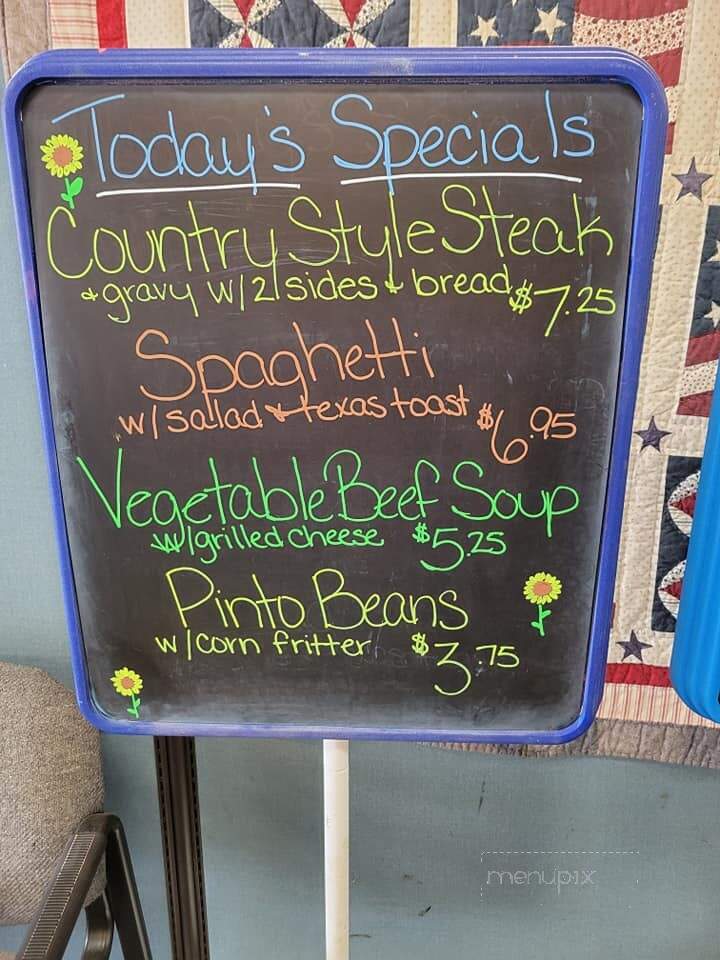 Today's Specials
Country Style Steak
& gravy w/ 2 sides & bread $7.25
Spaghetti
w/ salad & texas toast $6.95
Vegetable Beef Soup
w/ grilled cheese $5.25
Pinto Beans
w/ corn fritter $3.75
menupix